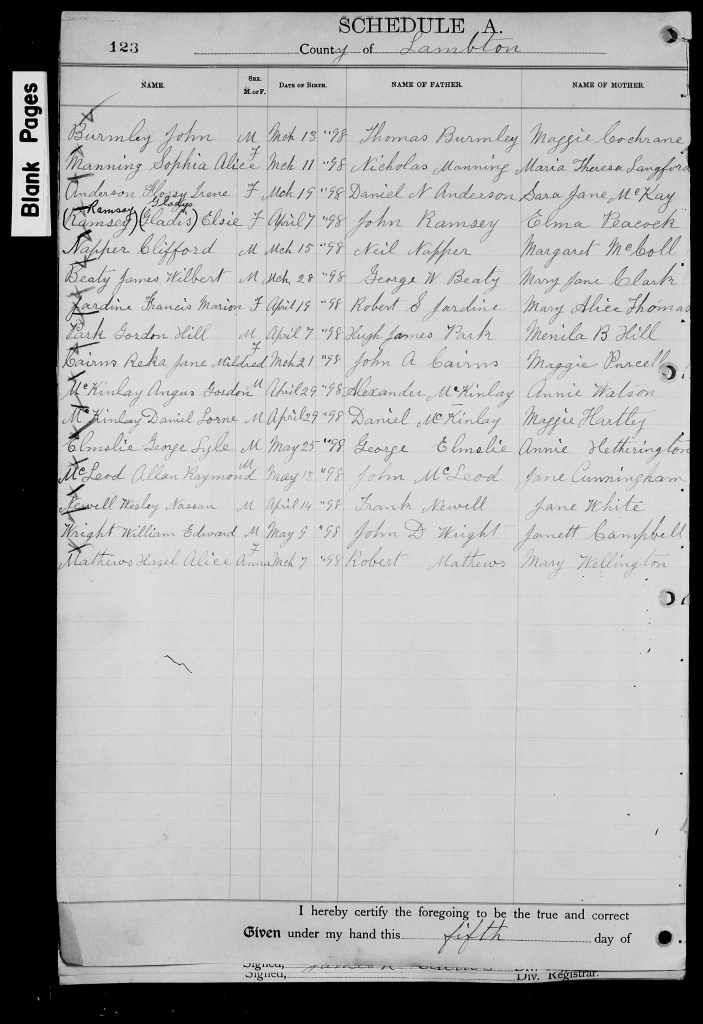 SCHEDULE A.
123
County of Lambton
Blank Pages
NAME. SEX. M. or F. DATE OF BIRTH. NAME OF FATHER. NAME OF MOTHER.
Burmley John M Mch 13 "98 Thomas Burmley Maggie Cochrane
Manning Sophia Alice F Mch 11 "98 Nicholas Manning Maria Theresa Langford
Anderson Flossy Irene F Mch 19 "98 Daniel N Anderson Sara Jane McKay
Ramsey Gladys
(Ramsey) (Gladis) Elsie F April 7 "98 John Ramsey Elma Peacock
Napper Clifford M Mch 15 "98 Neil Napper Margaret McColl
Beaty James Wilbert M Mch 28 "98 George W Beaty Mary Jane Clark
Jardine Francis Marion F April 19 "98 Robert S Jardine Mary Alice Thomas
Park Gordon Hill M April 7 "98 Hugh James Park Menila B Hill
Cairns Reka Jane Mildred F Mch 21 "98 John A Cairns Maggie Purcell
McKinlay Angus Gordon M April 29 "98 Alexander McKinlay Annie Watson
McKinlay Daniel Lorne M April 29 "98 Daniel McKinlay Maggie Hartley
Elmslie George Lyle M May 25 "98 George Elmslie Annie Hetherington
McLeod Allan Raymond M May 12 "98 John McLeod Jane Cunningham
Newell Wesley Nassau M April 14 "98 Frank Newell Jane White
Wright William Edward M May 9 "98 John D Wright Janett Campbell
Mathews Hazel Alice Anna F Mch 7 "98 Robert Mathews Mary Wellington
I hereby certify the foregoing to be the true and correct
Given under my hand this fifth day of
Signed,
Signed, Div. Registrar.